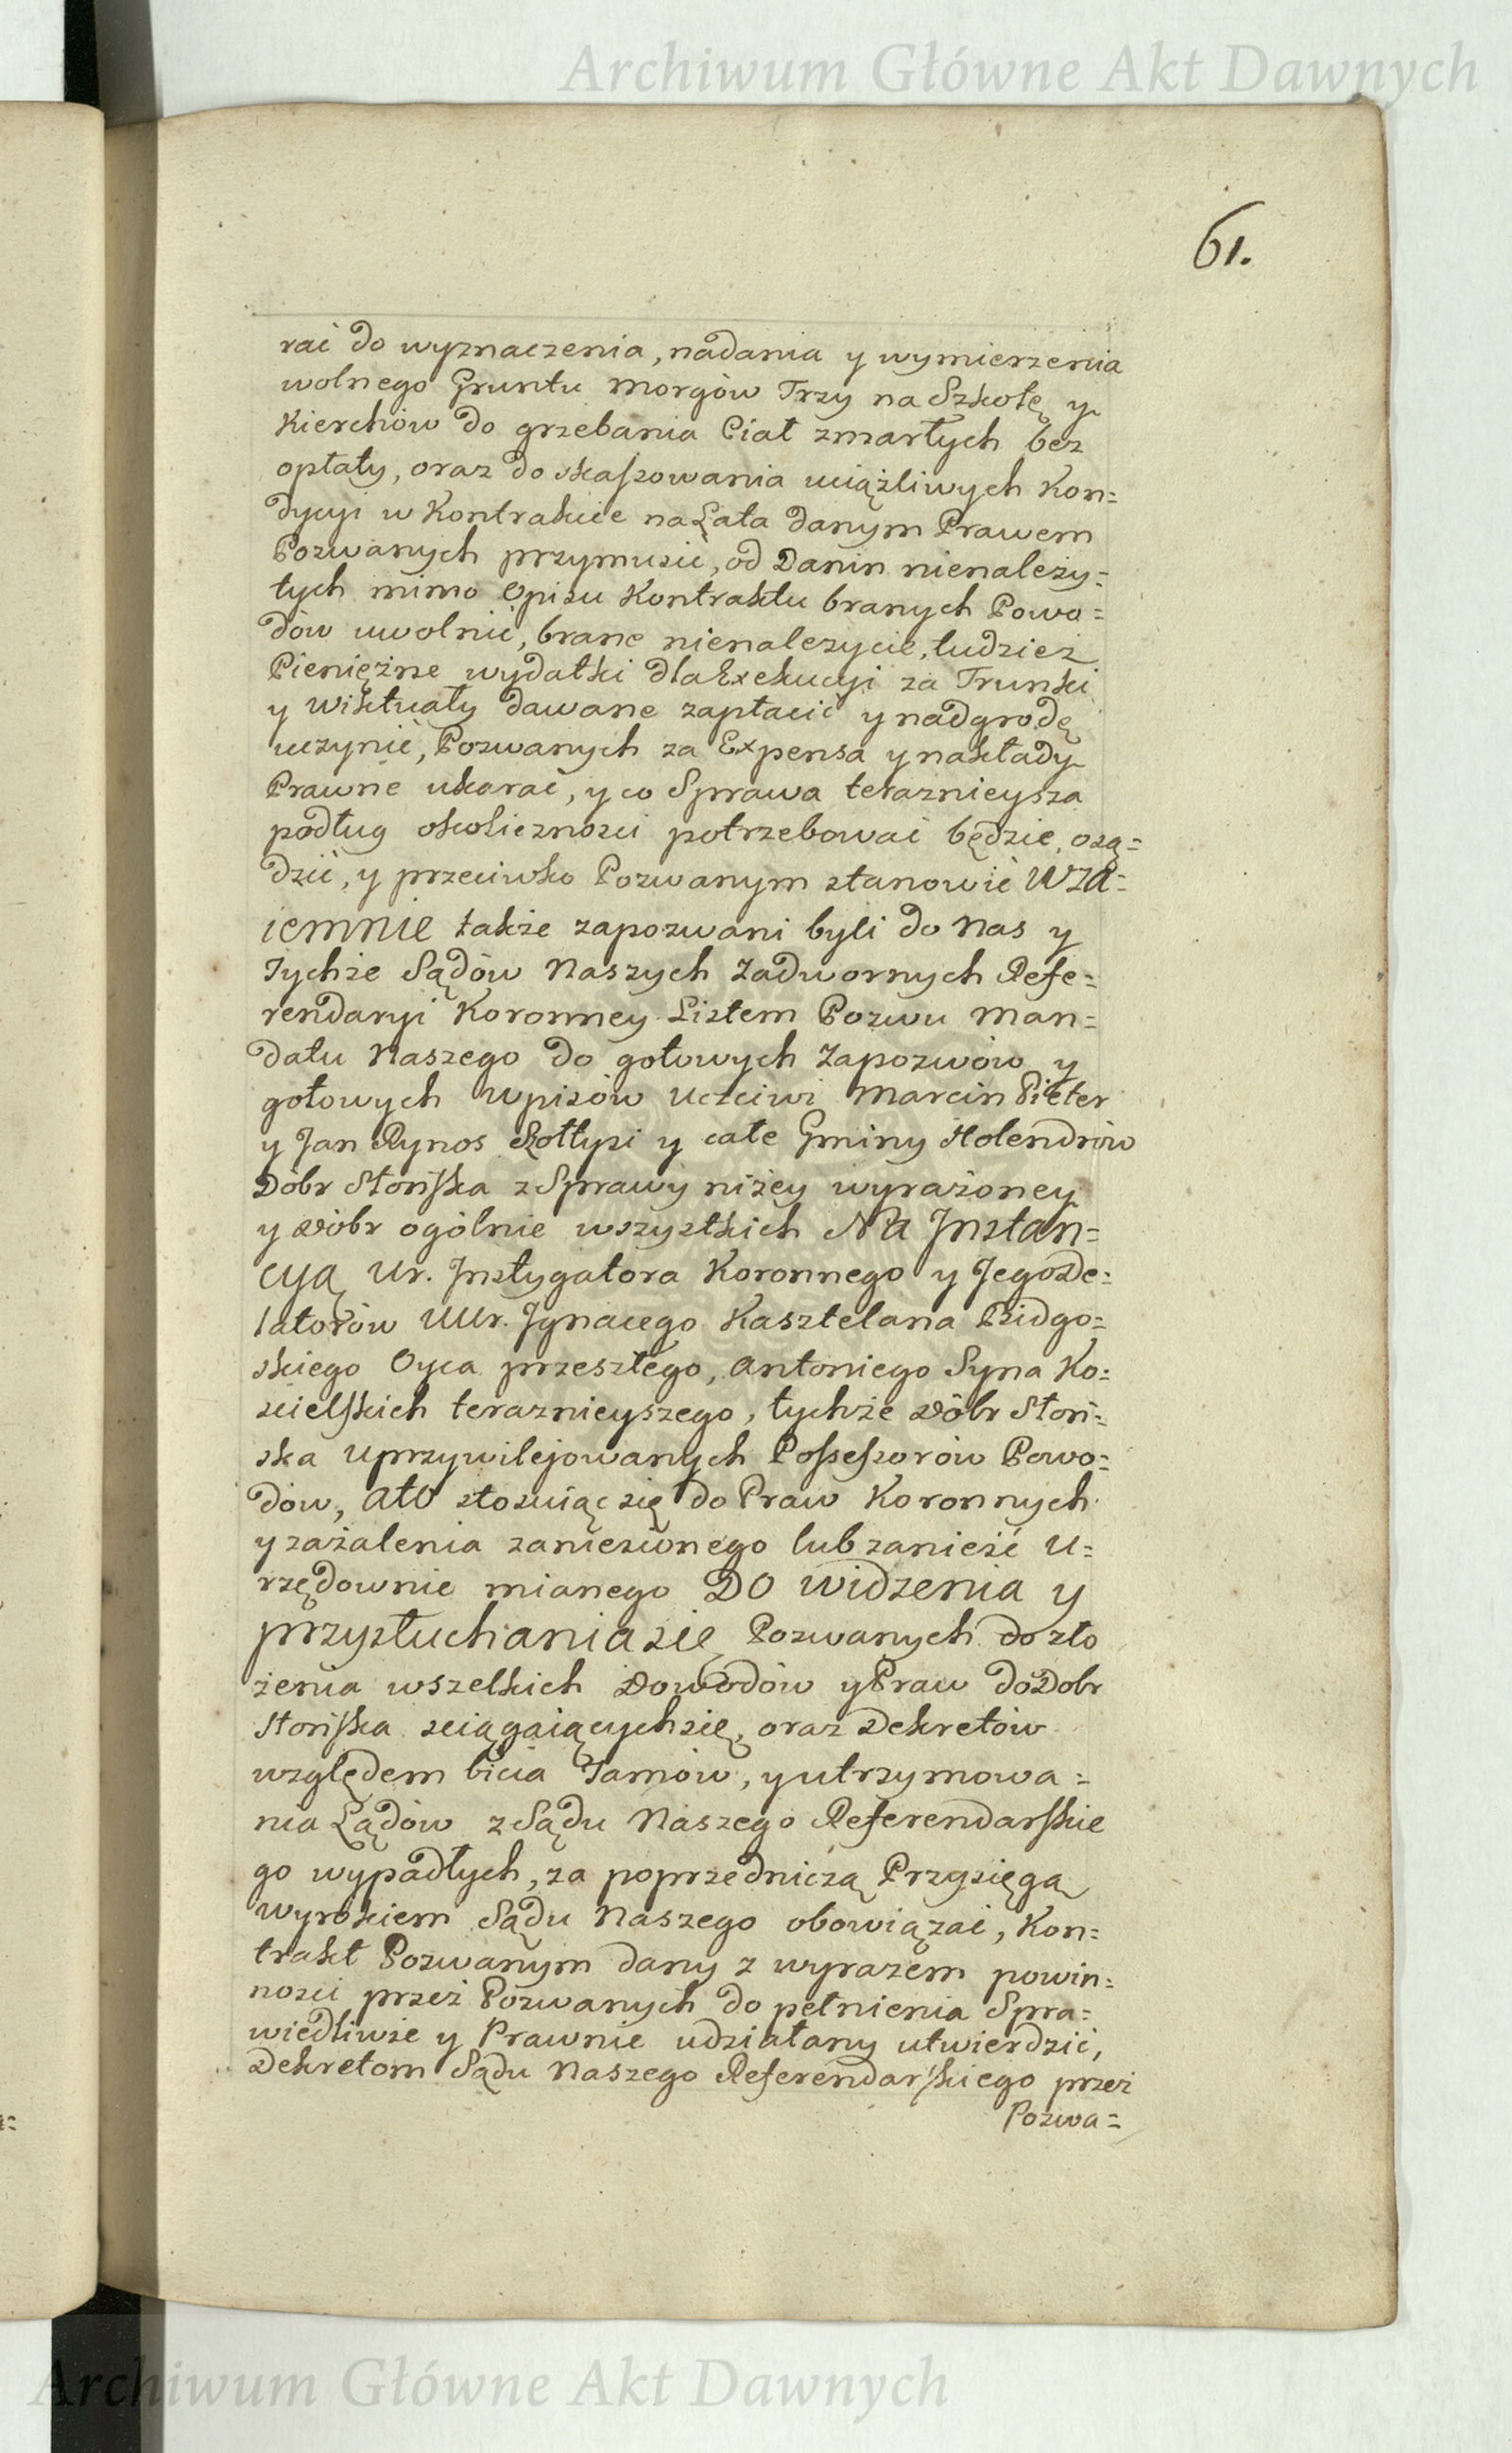 Archiwum Główne Akt Dawnych
61.
rać do wyznaczenia, nadania y wymierzenia
wolnego Gruntu Morgów Trzy na Szkołę y
Kierchów do grzebania Ciał zmarłych bez
opłaty, oraz do skassowania uciążliwych Kon=
dycyi w Kontrakcie na Lata danym Prawem
Pozwanych przymusić, od Danin nienależy=
tych mimo Opisu Kontraktu branych Powo=
dów uwolnić, brane nienależycie, tudzież
Pieniężne wydatki dla Exekucyi za Trunki
y wiktuały dawane zapłacić y nadgrodę
uczynić, Pozwanych za Expensa y nakłady
Prawne ukarać, y co Sprawa teraznieysza
podług okoliczności potrzebować będzie, osą=
dzić, y przeciwko Pozwanym stanowić WZA=
IEMNIE także zapozwani byli do Nas y
Tychże Sądów Naszych Zadwornych Refe=
rendaryi Koronney Listem Pozwu Man=
datu Naszego do gotowych Zapozwów y
gotowych Wpisów Uczciwi Marcin Pieter
y Jan Rynos Sołtysi y całe Gminy Holendrów
Dóbr Słońska z Sprawy niżey wyrażoney
y Dóbr ogólnie wszystkich NA Jnstan=
cyą Ur. Jnstygatora Koronnego y Jego De=
latorów UUr. Jgnacego Kasztelana Bidgo=
skiego Oyca przeszłego, Antoniego Syna Ko=
scielskich teraznieyszego, tychże Dóbr Słoń=
ska Uprzywilejowanych Possessorów Powo=
dów, ATO stosuiąc się do Praw Koronnych
y zażalenia zaniesionego lub zanieść U=
rzędownie mianego DO widzenia y
przysłuchania się Pozwanych do zło
żenia wszelkich Dowodów y Praw do Dobr
Słońska sciągaiących się, oraz Dekretów
względem bicia Tamów, y utrzymowa=
nia Lądów z Sądu Naszego Referendarskie
go wypadłych, za poprzedniczą Przysięgą
wyrokiem Sądu Naszego obowiązać, Kon=
trakt Pozwanym dany z wyrazem powin=
ności przez Pozwanych do pełnienia Spra=
wiedliwie y Prawnie udziałany utwierdzić,
Dekretom Sądu Naszego Referendarskiego przez
Pozwa=
Archiwum Główne Akt Dawnych